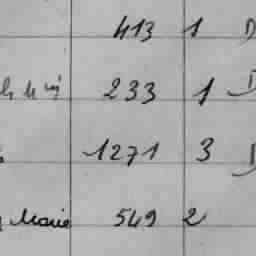 413 1 D
233 1
1271 3
Marie 549 2